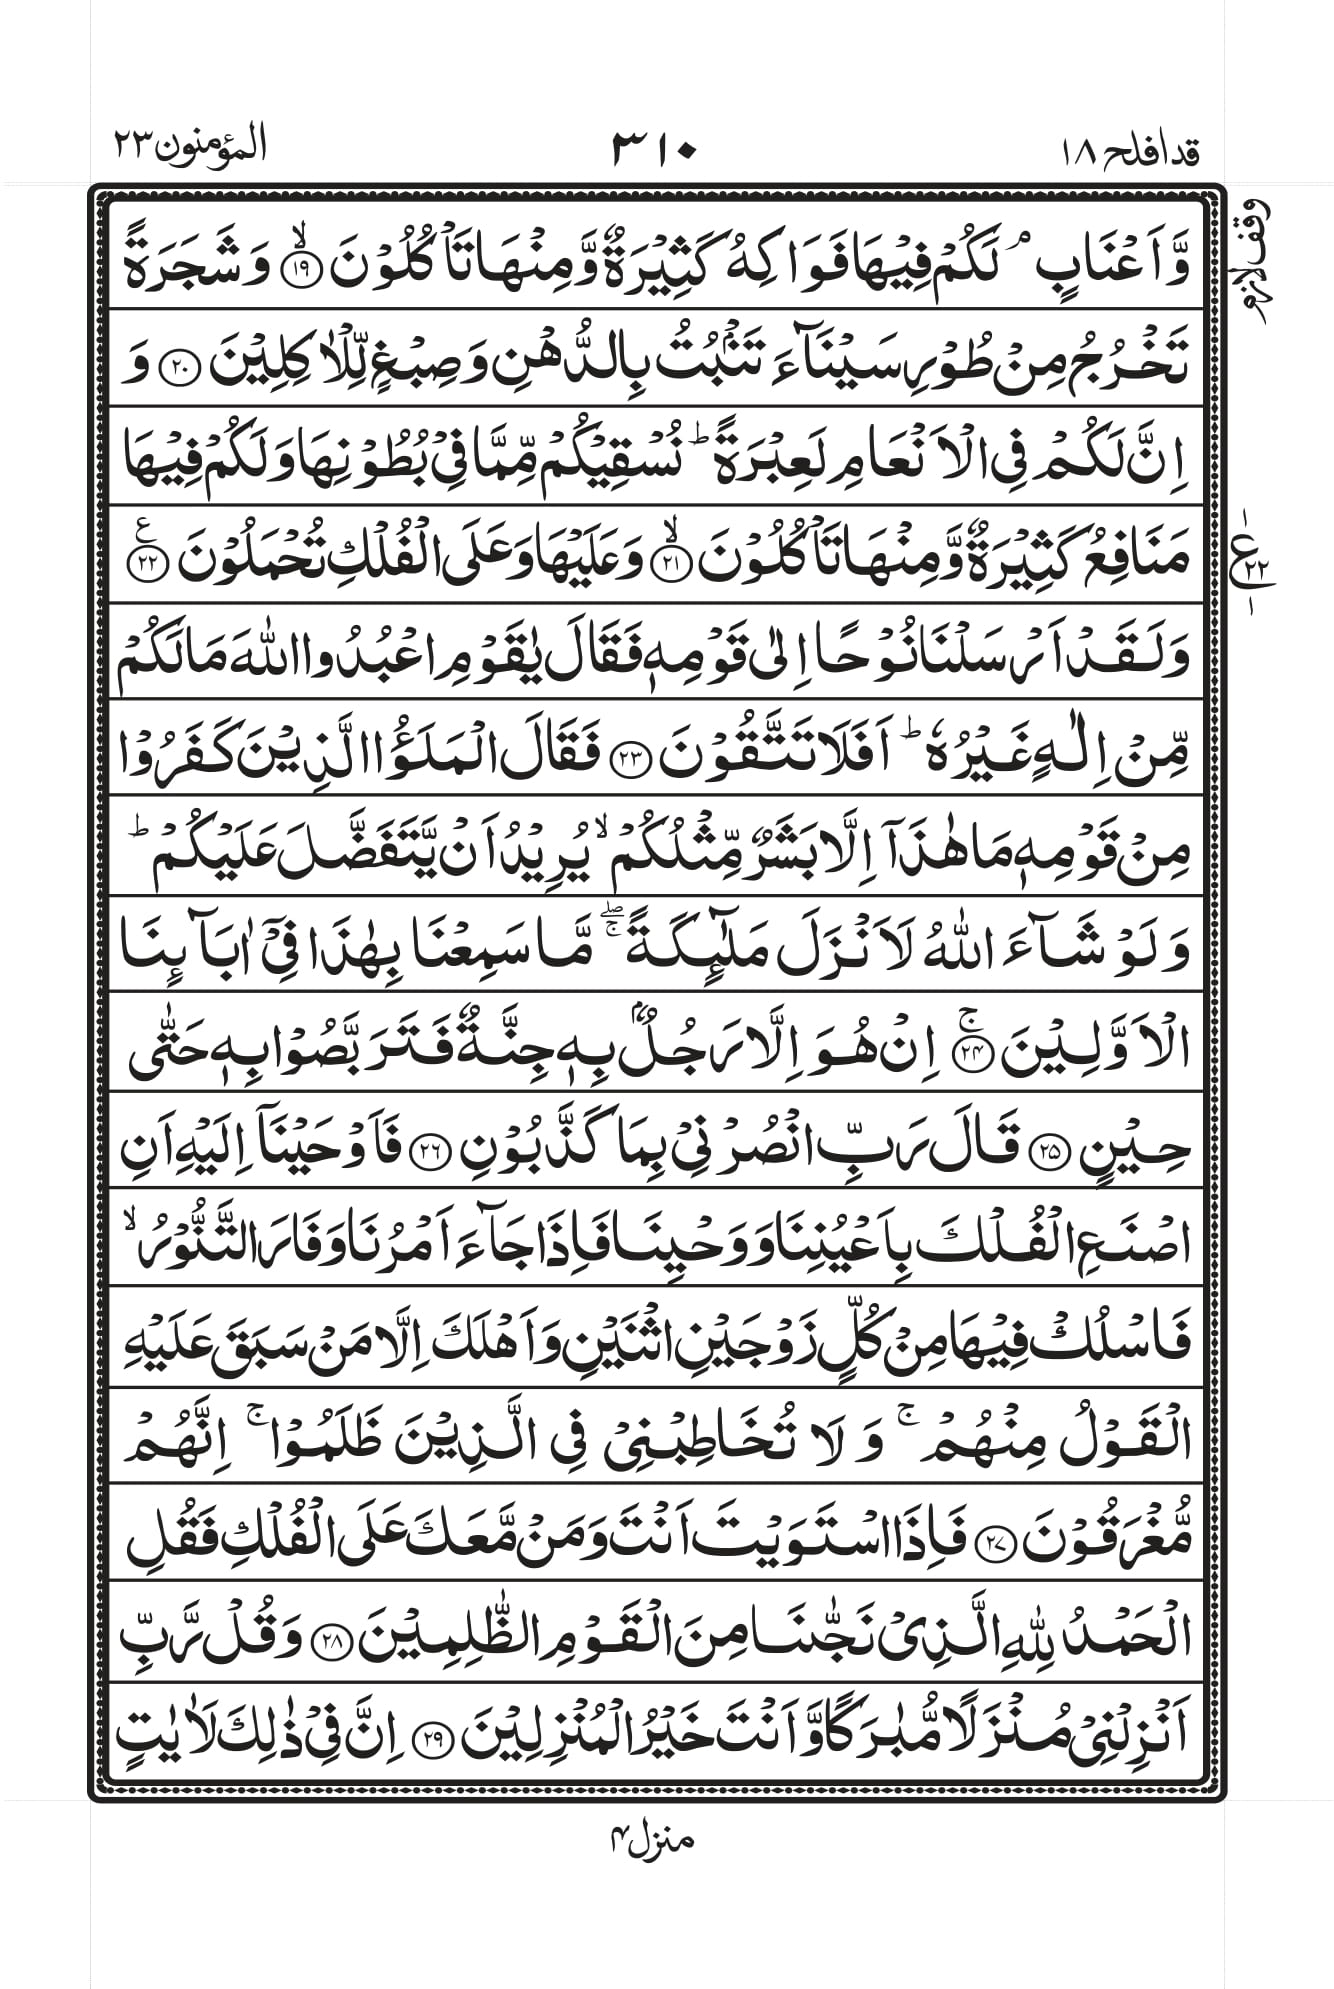 قد افلح ١٨
٣١٠
المؤمنون ٢٣
وقف لازم
وَّاَعْنَابٍ ۘ لَكُمْ فِيْهَا فَوَاكِهُ كَثِيْرَةٌ وَّمِنْهَا تَاْكُلُوْنَ ۙ﴿۱۹﴾ وَشَجَرَةً
تَخْرُجُ مِنْ طُوْرِ سَيْنَآءَ تَنْۢبُتُ بِالدُّهْنِ وَصِبْغٍ لِّلْاٰكِلِيْنَ ﴿۲۰﴾ وَ
اِنَّ لَكُمْ فِى الْاَنْعَامِ لَعِبْرَةً ؕ نُسْقِيْكُمْ مِّمَّا فِىْ بُطُوْنِهَا وَلَكُمْ فِيْهَا
مَنَافِعُ كَثِيْرَةٌ وَّمِنْهَا تَاْكُلُوْنَ ۙ﴿۲۱﴾ وَعَلَيْهَا وَعَلَى الْفُلْكِ تُحْمَلُوْنَ ﴿۲۲﴾ ع
١ ع ٢٢ ١
وَلَقَدْ اَرْسَلْنَا نُوْحًا اِلٰى قَوْمِهٖ فَقَالَ يٰقَوْمِ اعْبُدُوا اللّٰهَ مَا لَكُمْ
مِّنْ اِلٰهٍ غَيْرُهٗ ؕ اَفَلَا تَتَّقُوْنَ ﴿۲۳﴾ فَقَالَ الْمَلَؤُا الَّذِيْنَ كَفَرُوْا
مِنْ قَوْمِهٖ مَا هٰذَآ اِلَّا بَشَرٌ مِّثْلُكُمْ ۙ يُرِيْدُ اَنْ يَّتَفَضَّلَ عَلَيْكُمْ ؕ
وَلَوْ شَآءَ اللّٰهُ لَاَنْزَلَ مَلٰٓئِكَةً ۖۚ مَّا سَمِعْنَا بِهٰذَا فِىْۤ اٰبَآئِنَا
الْاَوَّلِيْنَ ۚ﴿۲۴﴾ اِنْ هُوَ اِلَّا رَجُلٌۢ بِهٖ جِنَّةٌ فَتَرَبَّصُوْا بِهٖ حَتّٰى
حِيْنٍ ﴿۲۵﴾ قَالَ رَبِّ انْصُرْنِىْ بِمَا كَذَّبُوْنِ ﴿۲۶﴾ فَاَوْحَيْنَآ اِلَيْهِ اَنِ
اصْنَعِ الْفُلْكَ بِاَعْيُنِنَا وَوَحْيِنَا فَاِذَا جَآءَ اَمْرُنَا وَفَارَ التَّنُّوْرُ ۙ
فَاسْلُكْ فِيْهَا مِنْ كُلٍّ زَوْجَيْنِ اثْنَيْنِ وَاَهْلَكَ اِلَّا مَنْ سَبَقَ عَلَيْهِ
الْقَوْلُ مِنْهُمْ ۚ وَلَا تُخَاطِبْنِىْ فِى الَّذِيْنَ ظَلَمُوْا ۚ اِنَّهُمْ
مُّغْرَقُوْنَ ﴿۲۷﴾ فَاِذَا اسْتَوَيْتَ اَنْتَ وَمَنْ مَّعَكَ عَلَى الْفُلْكِ فَقُلِ
الْحَمْدُ لِلّٰهِ الَّذِىْ نَجّٰىنَا مِنَ الْقَوْمِ الظّٰلِمِيْنَ ﴿۲۸﴾ وَقُلْ رَّبِّ
اَنْزِلْنِىْ مُنْزَلًا مُّبٰرَكًا وَّاَنْتَ خَيْرُ الْمُنْزِلِيْنَ ﴿۲۹﴾ اِنَّ فِىْ ذٰلِكَ لَاٰيٰتٍ
منزل ۴